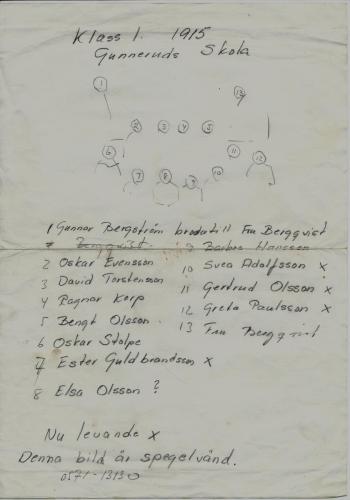 Klass 1. 1915
Gunneruds Skola
1 13
2 3 4 5
6 11 12
7 8 9 10
1 Gunnar Bergström broder till Fru Bergqvist
Bergqvist
2 Oskar Evensson
3 David Torstensson
4 Ragnar Korp
5 Bengt Olsson
6 Oskar Stolpe
7 Ester Guldbrandsson x
8 Elsa Olsson ?
9 Barbro Hansson
10 Svea Adolfsson x
11 Gertrud Olsson x
12 Greta Paulsson x
13 Fru Bergqvist
Nu levande x
Denna bild är spegelvänd.
0571-13130